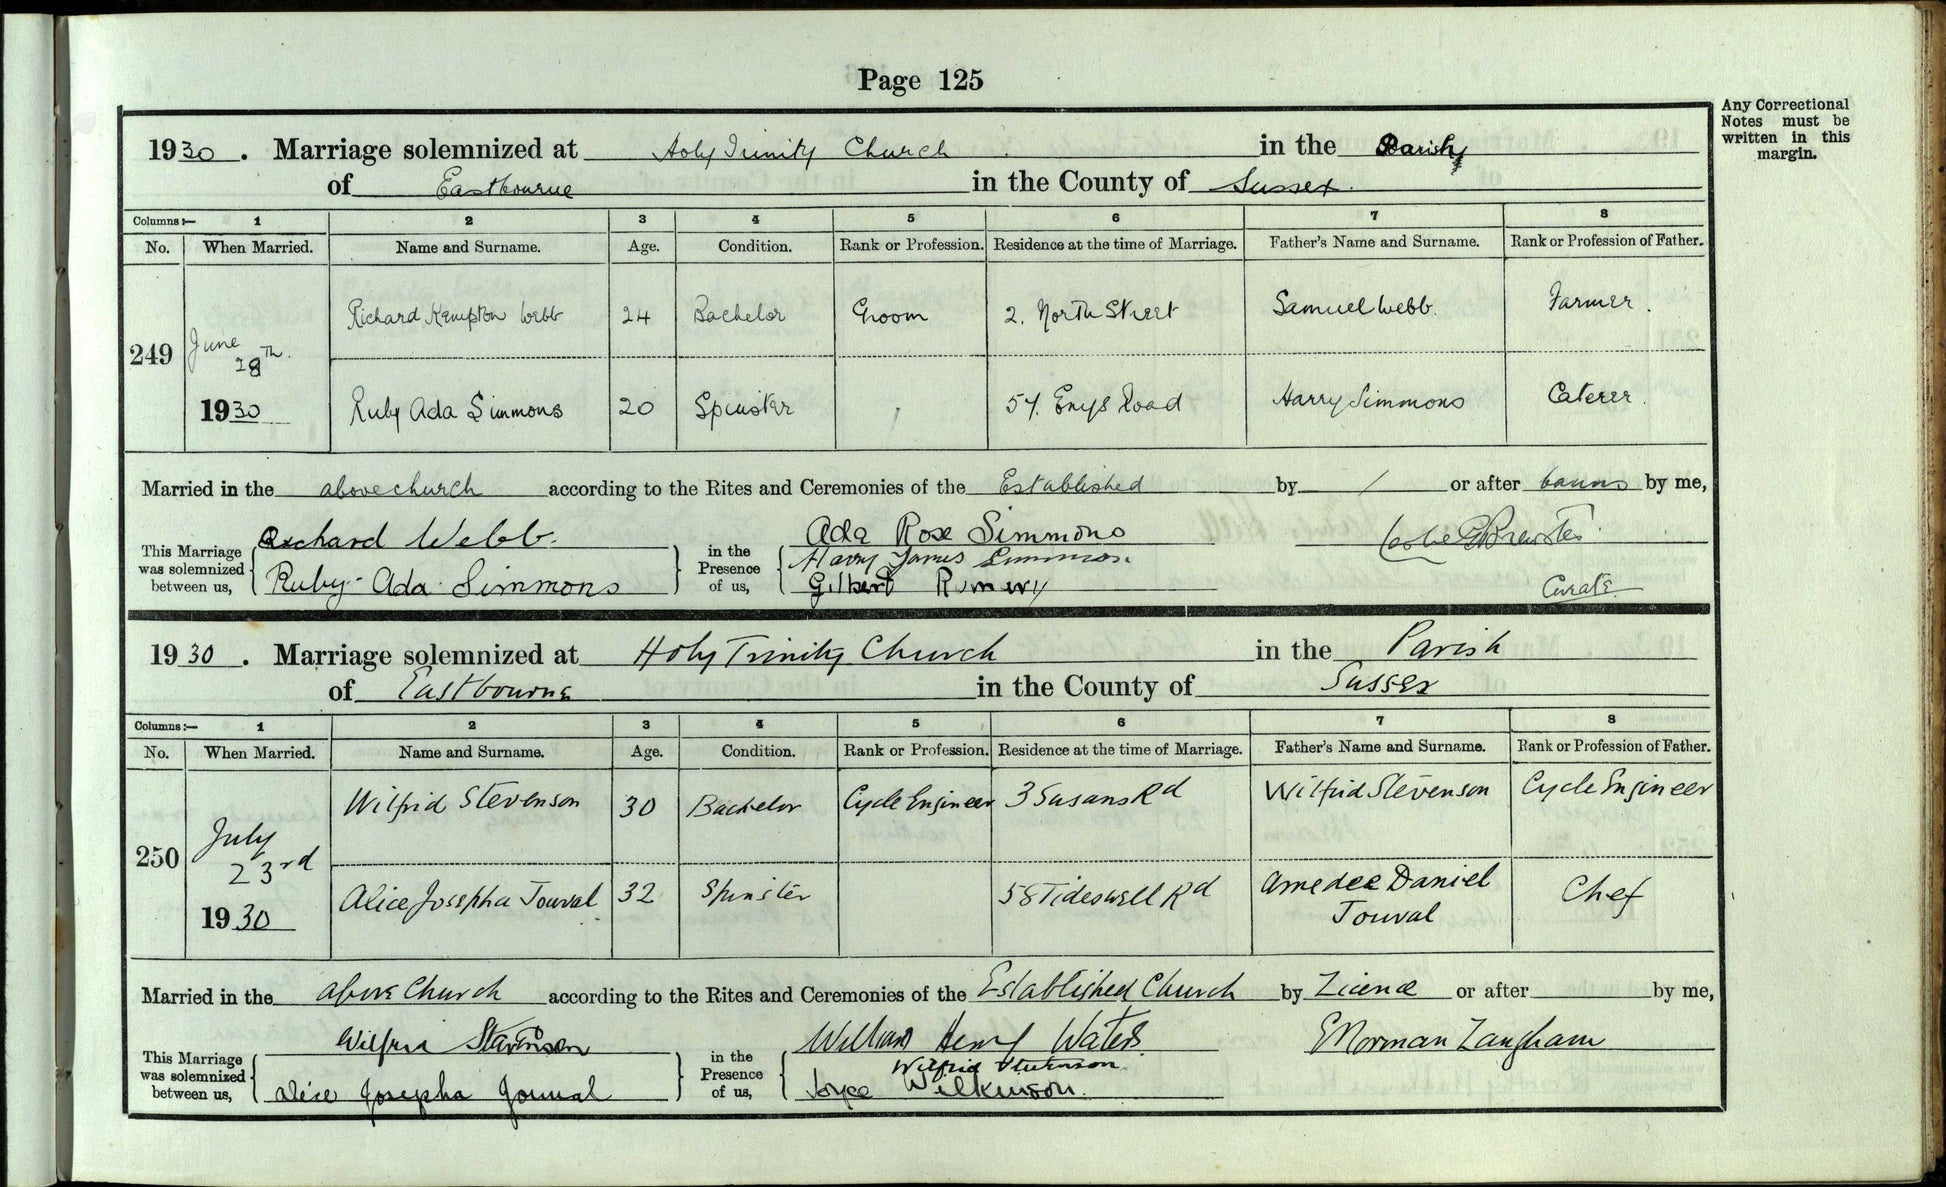 Page 125
Any Correctional
Notes must be
written in this
margin.
1930. Marriage solemnized at Holy Trinity Church in the Parish
of Eastbourne in the County of Sussex.
Columns:— 1 2 3 4 5 6 7 8
No. When Married. Name and Surname. Age. Condition. Rank or Profession. Residence at the time of Marriage. Father's Name and Surname. Rank or Profession of Father.
249 June 28th. 1930 Richard Kempton Webb 24 Bachelor Groom 2. North Street Samuel Webb. Farmer.
Ruby Ada Simmons 20 Spinster / 57. Enys Road Harry Simmons Caterer.
Married in the above church according to the Rites and Ceremonies of the Established by / or after banns by me,
This Marriage was solemnized between us,
Richard Webb.
Ruby Ada Simmons
in the Presence of us,
Ada Rose Simmons
Harry James Simmons.
Gilbert Rumery
Curate.
1930. Marriage solemnized at Holy Trinity Church in the Parish
of Eastbourne in the County of Sussex
Columns:— 1 2 3 4 5 6 7 8
No. When Married. Name and Surname. Age. Condition. Rank or Profession. Residence at the time of Marriage. Father's Name and Surname. Rank or Profession of Father.
250 July 23rd 1930 Wilfrid Stevenson 30 Bachelor Cycle Engineer 3 Susans Rd Wilfrid Stevenson Cycle Engineer
Alice Josepha Jouval 32 Spinster 58 Tideswell Rd Amedee Daniel Jouval Chef
Married in the above Church according to the Rites and Ceremonies of the Established Church by Licence or after by me,
This Marriage was solemnized between us,
Wilfrid Stevenson
Alice Josepha Jouval
in the Presence of us,
William Henry Waters.
Wilfrid Stevenson.
Joyce Wilkinson.
E Norman Langham